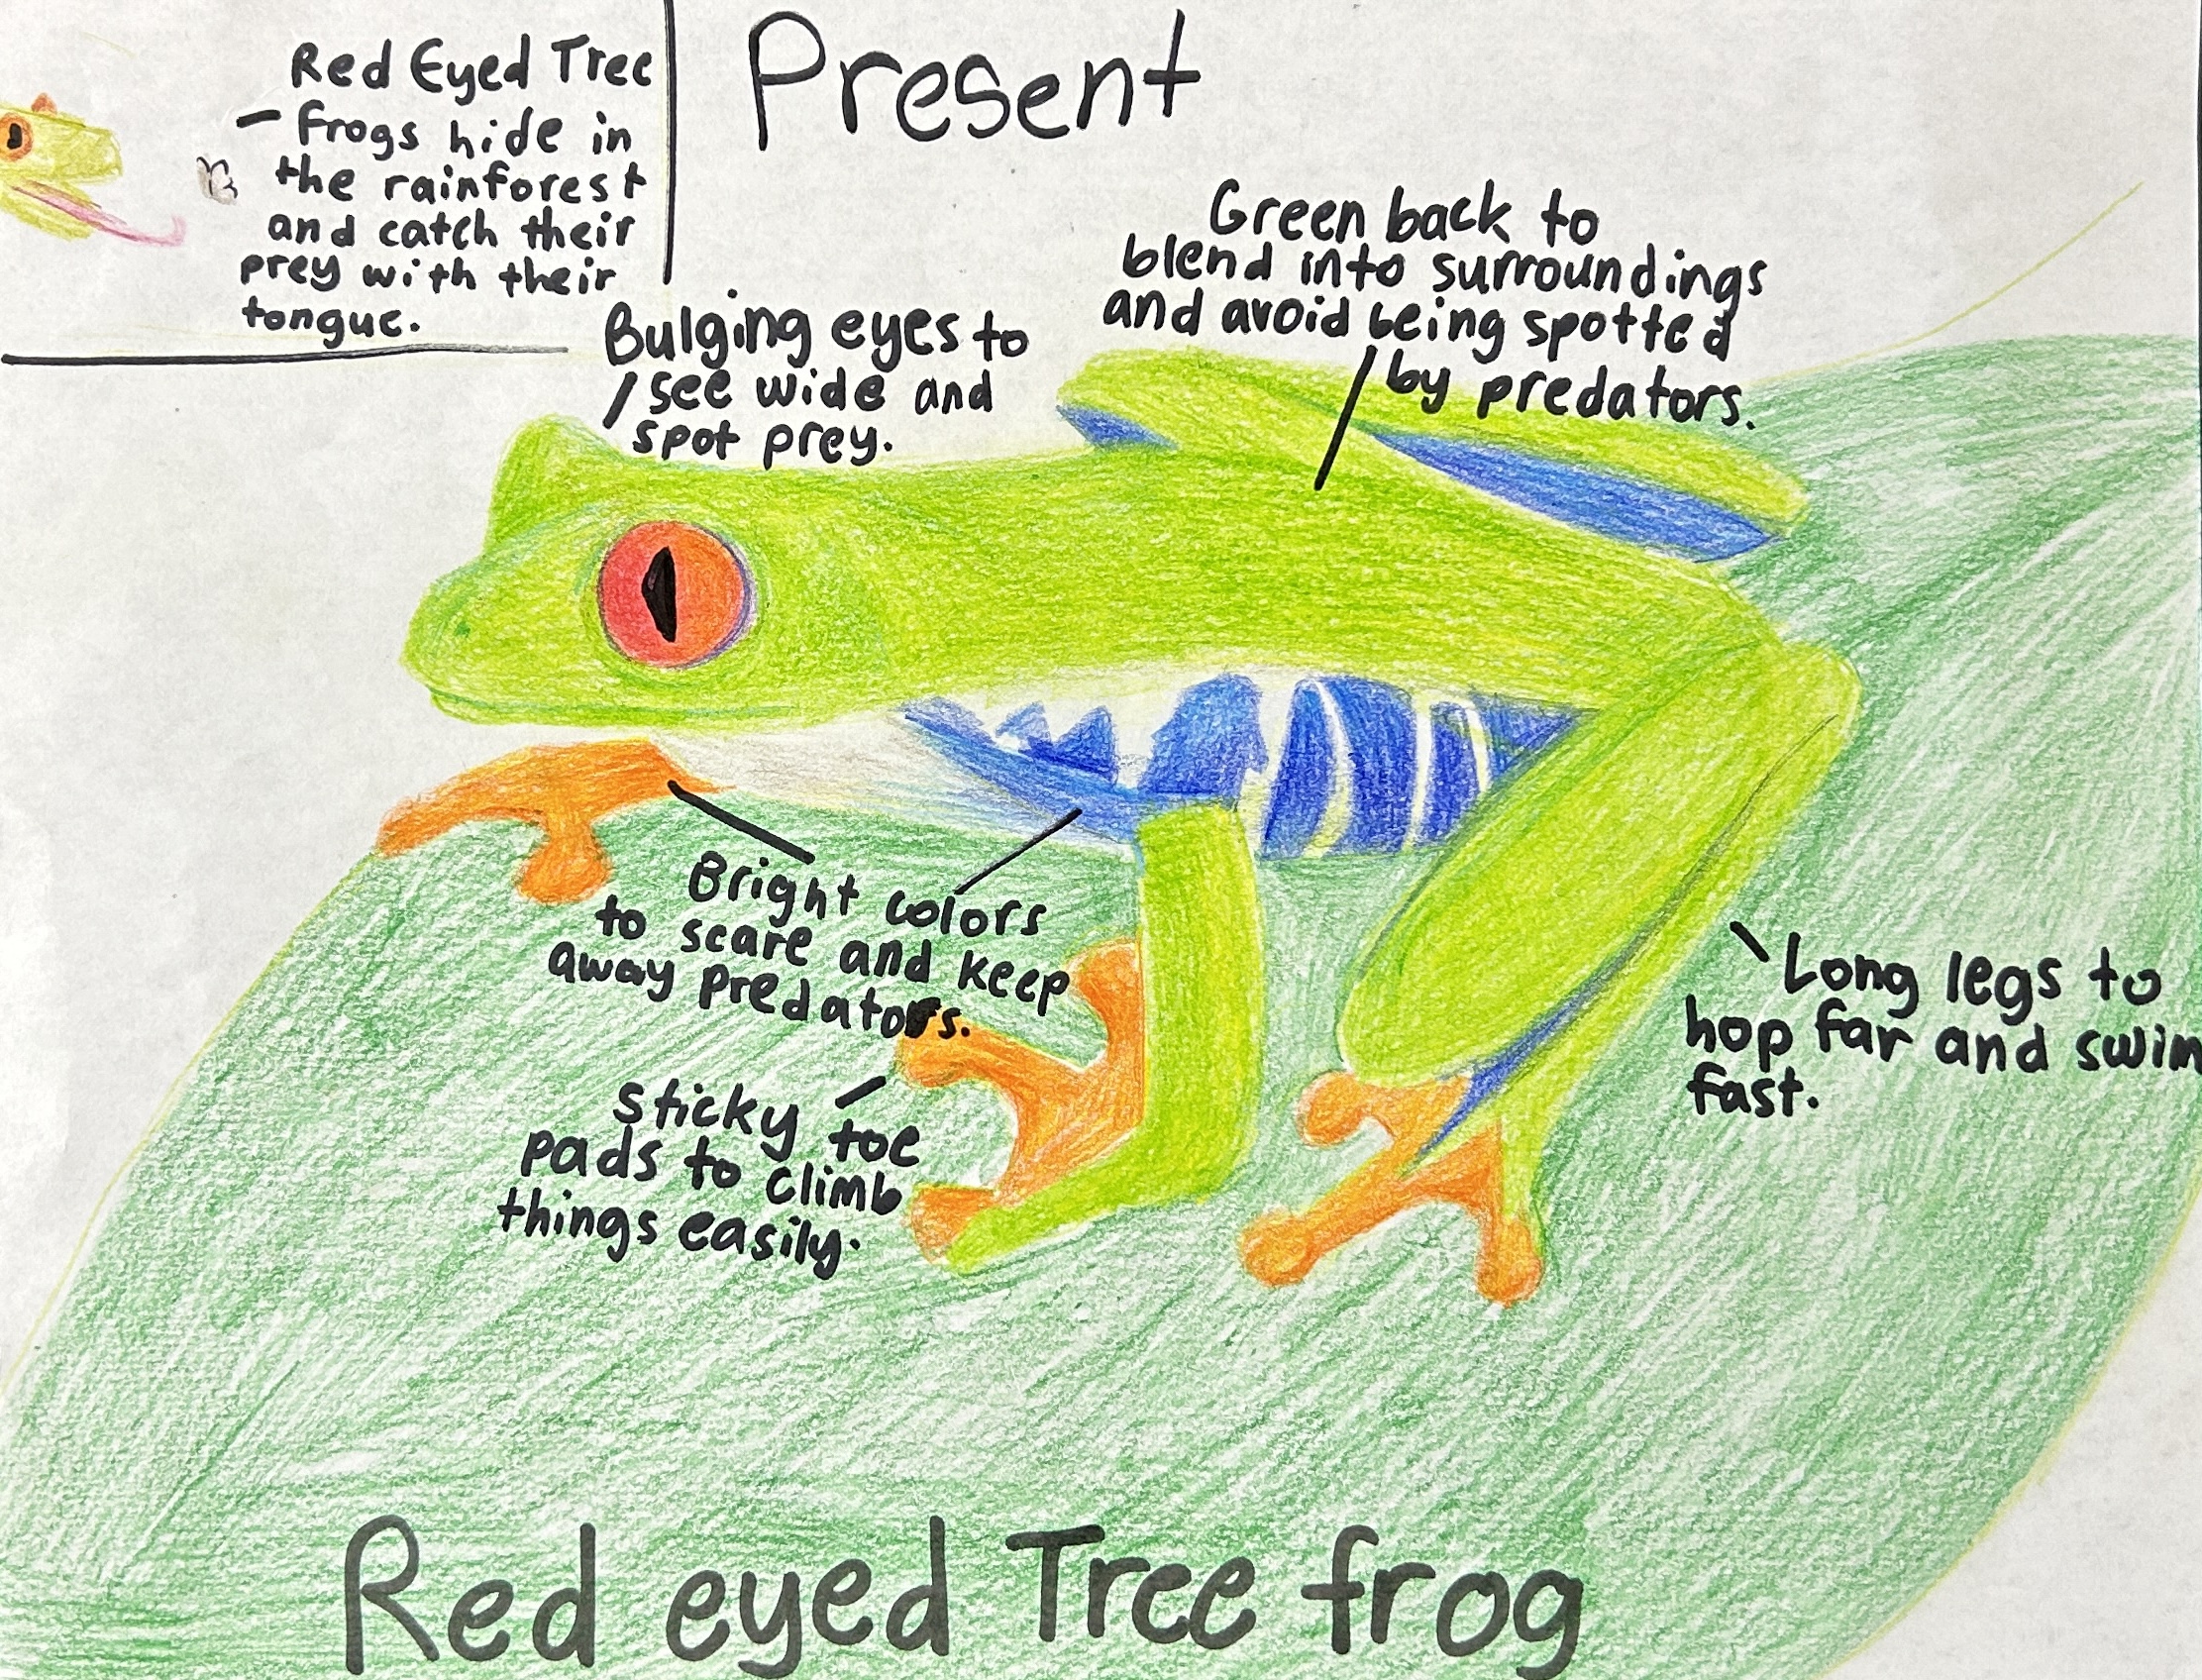 Red Eyed Tree
- Frogs hide in
the rainforest
and catch their
prey with their
tongue.
Present
Green back to
blend into surroundings
and avoid being spotted
by predators.
Bulging eyes to
see wide and
spot prey.
Bright colors
to scare and keep
away predators.
Sticky toe
pads to climb
things easily.
Long legs to
hop far and swim
fast.
Red eyed Tree frog